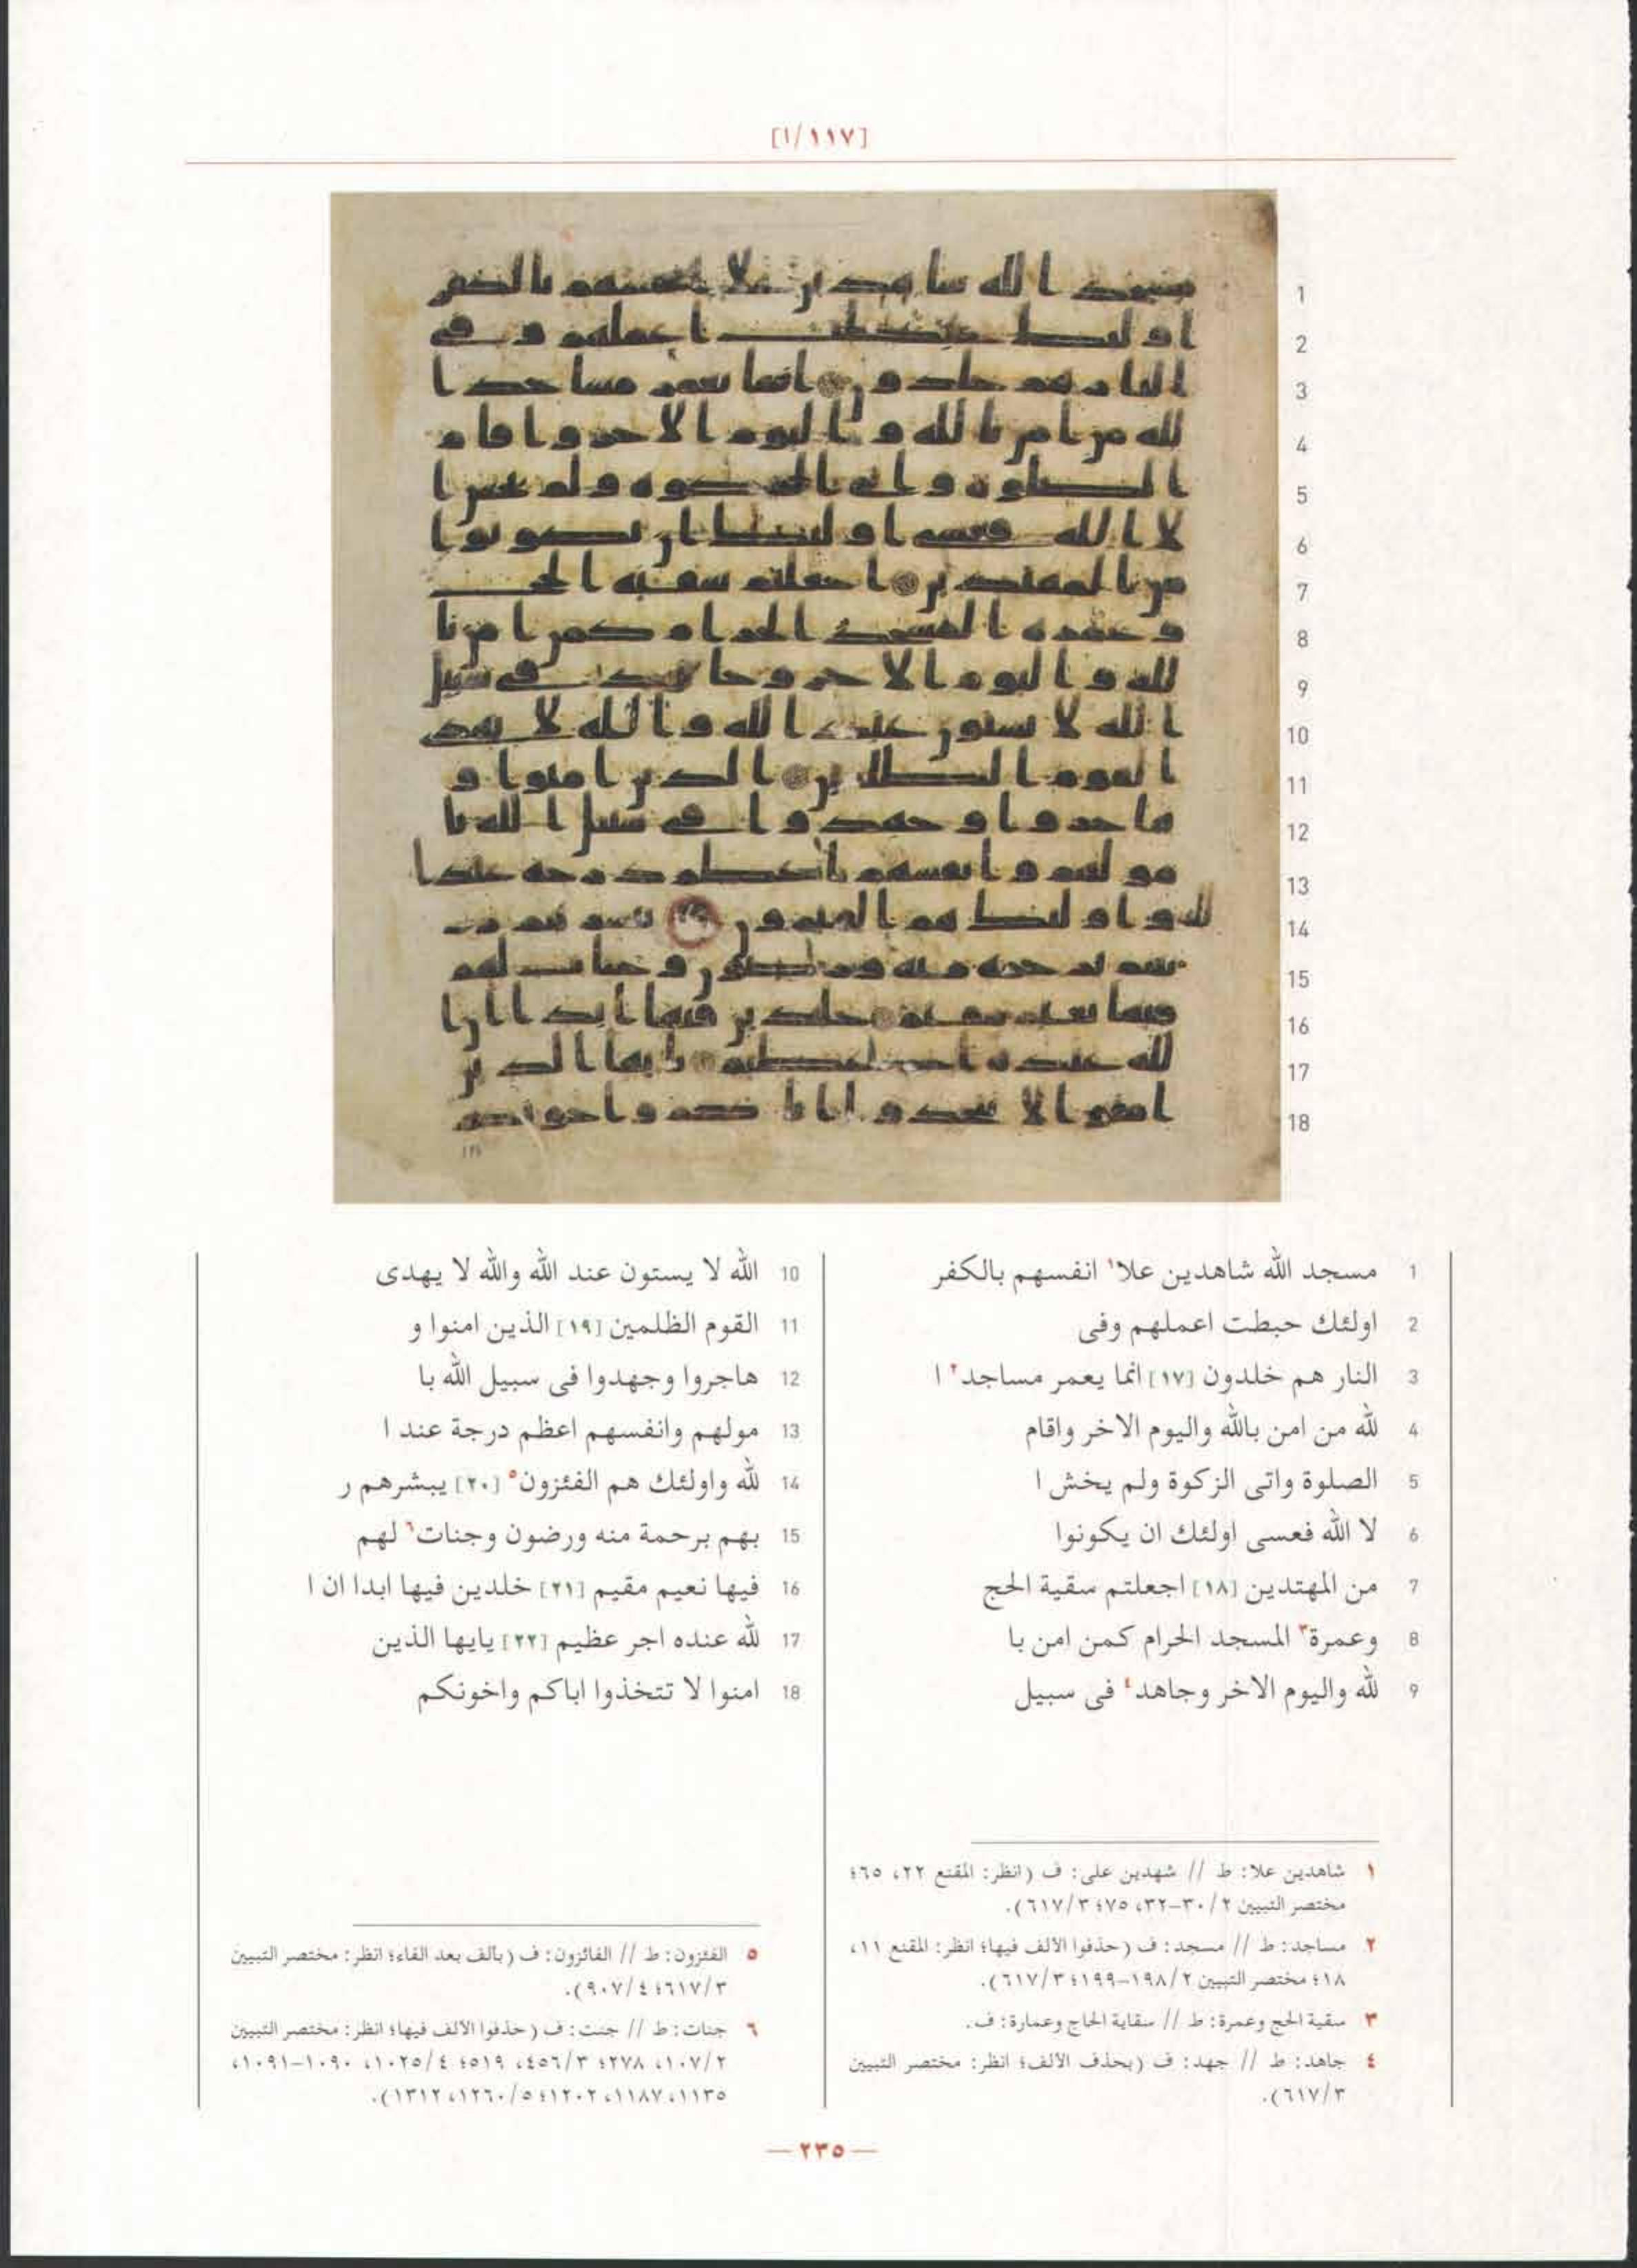 [١١٧/١]
1 مسجد الله شاهدين علا١ انفسهم بالكفر
2 اولئك حبطت اعملهم وفى
3 النار هم خلدون [١٧] انما يعمر مساجد٢ ا
4 لله من امن بالله واليوم الاخر واقام
5 الصلوة واتى الزكوة ولم يخش ا
6 لا الله فعسى اولئك ان يكونوا
7 من المهتدين [١٨] اجعلتم سقية الحج
8 وعمرة٣ المسجد الحرام كمن امن با
9 لله واليوم الاخر وجاهد٤ فى سبيل
10 الله لا يستون عند الله والله لا يهدى
11 القوم الظلمين [١٩] الذين امنوا و
12 هاجروا وجهدوا فى سبيل الله با
13 مولهم وانفسهم اعظم درجة عند ا
14 لله واولئك هم الفئزون٥ [٢٠] يبشرهم ر
15 بهم برحمة منه ورضون وجنات٦ لهم
16 فيها نعيم مقيم [٢١] خلدين فيها ابدا ان ا
17 لله عنده اجر عظيم [٢٢] يايها الذين
18 امنوا لا تتخذوا اباكم واخونكم
١ شاهدين علا: ط // شهدين على: ف (انظر: المقنع ٢٢، ٦٥؛
مختصر التبيين ٢/٣٠-٣٢، ٧٥؛ ٣/٦١٧).
٢ مساجد: ط // مسجد: ف (حذفوا الالف فيها؛ انظر: المقنع ١١،
١٨؛ مختصر التبيين ٢/١٩٨-١٩٩؛ ٣/٦١٧).
٣ سقية الحج وعمرة: ط // سقاية الحاج وعمارة: ف.
٤ جاهد: ط // جهد: ف (بحذف الالف؛ انظر: مختصر التبيين
٣/٦١٧).
٥ الفئزون: ط // الفائزون: ف (بالف بعد الفاء؛ انظر: مختصر التبيين
٣/٦١٧؛ ٤/٩٠٧).
٦ جنات: ط // جنت: ف (حذفوا الالف فيها؛ انظر: مختصر التبيين
٢/١٠٧، ٢٧٨؛ ٣/٤٥٦، ٥١٩؛ ٤/١٠٢٥، ١٠٩٠-١٠٩١،
١١٣٥، ١١٨٧، ١٢٠٢؛ ٥/١٢٦٠، ١٣١٢).
— ٢٣٥ —